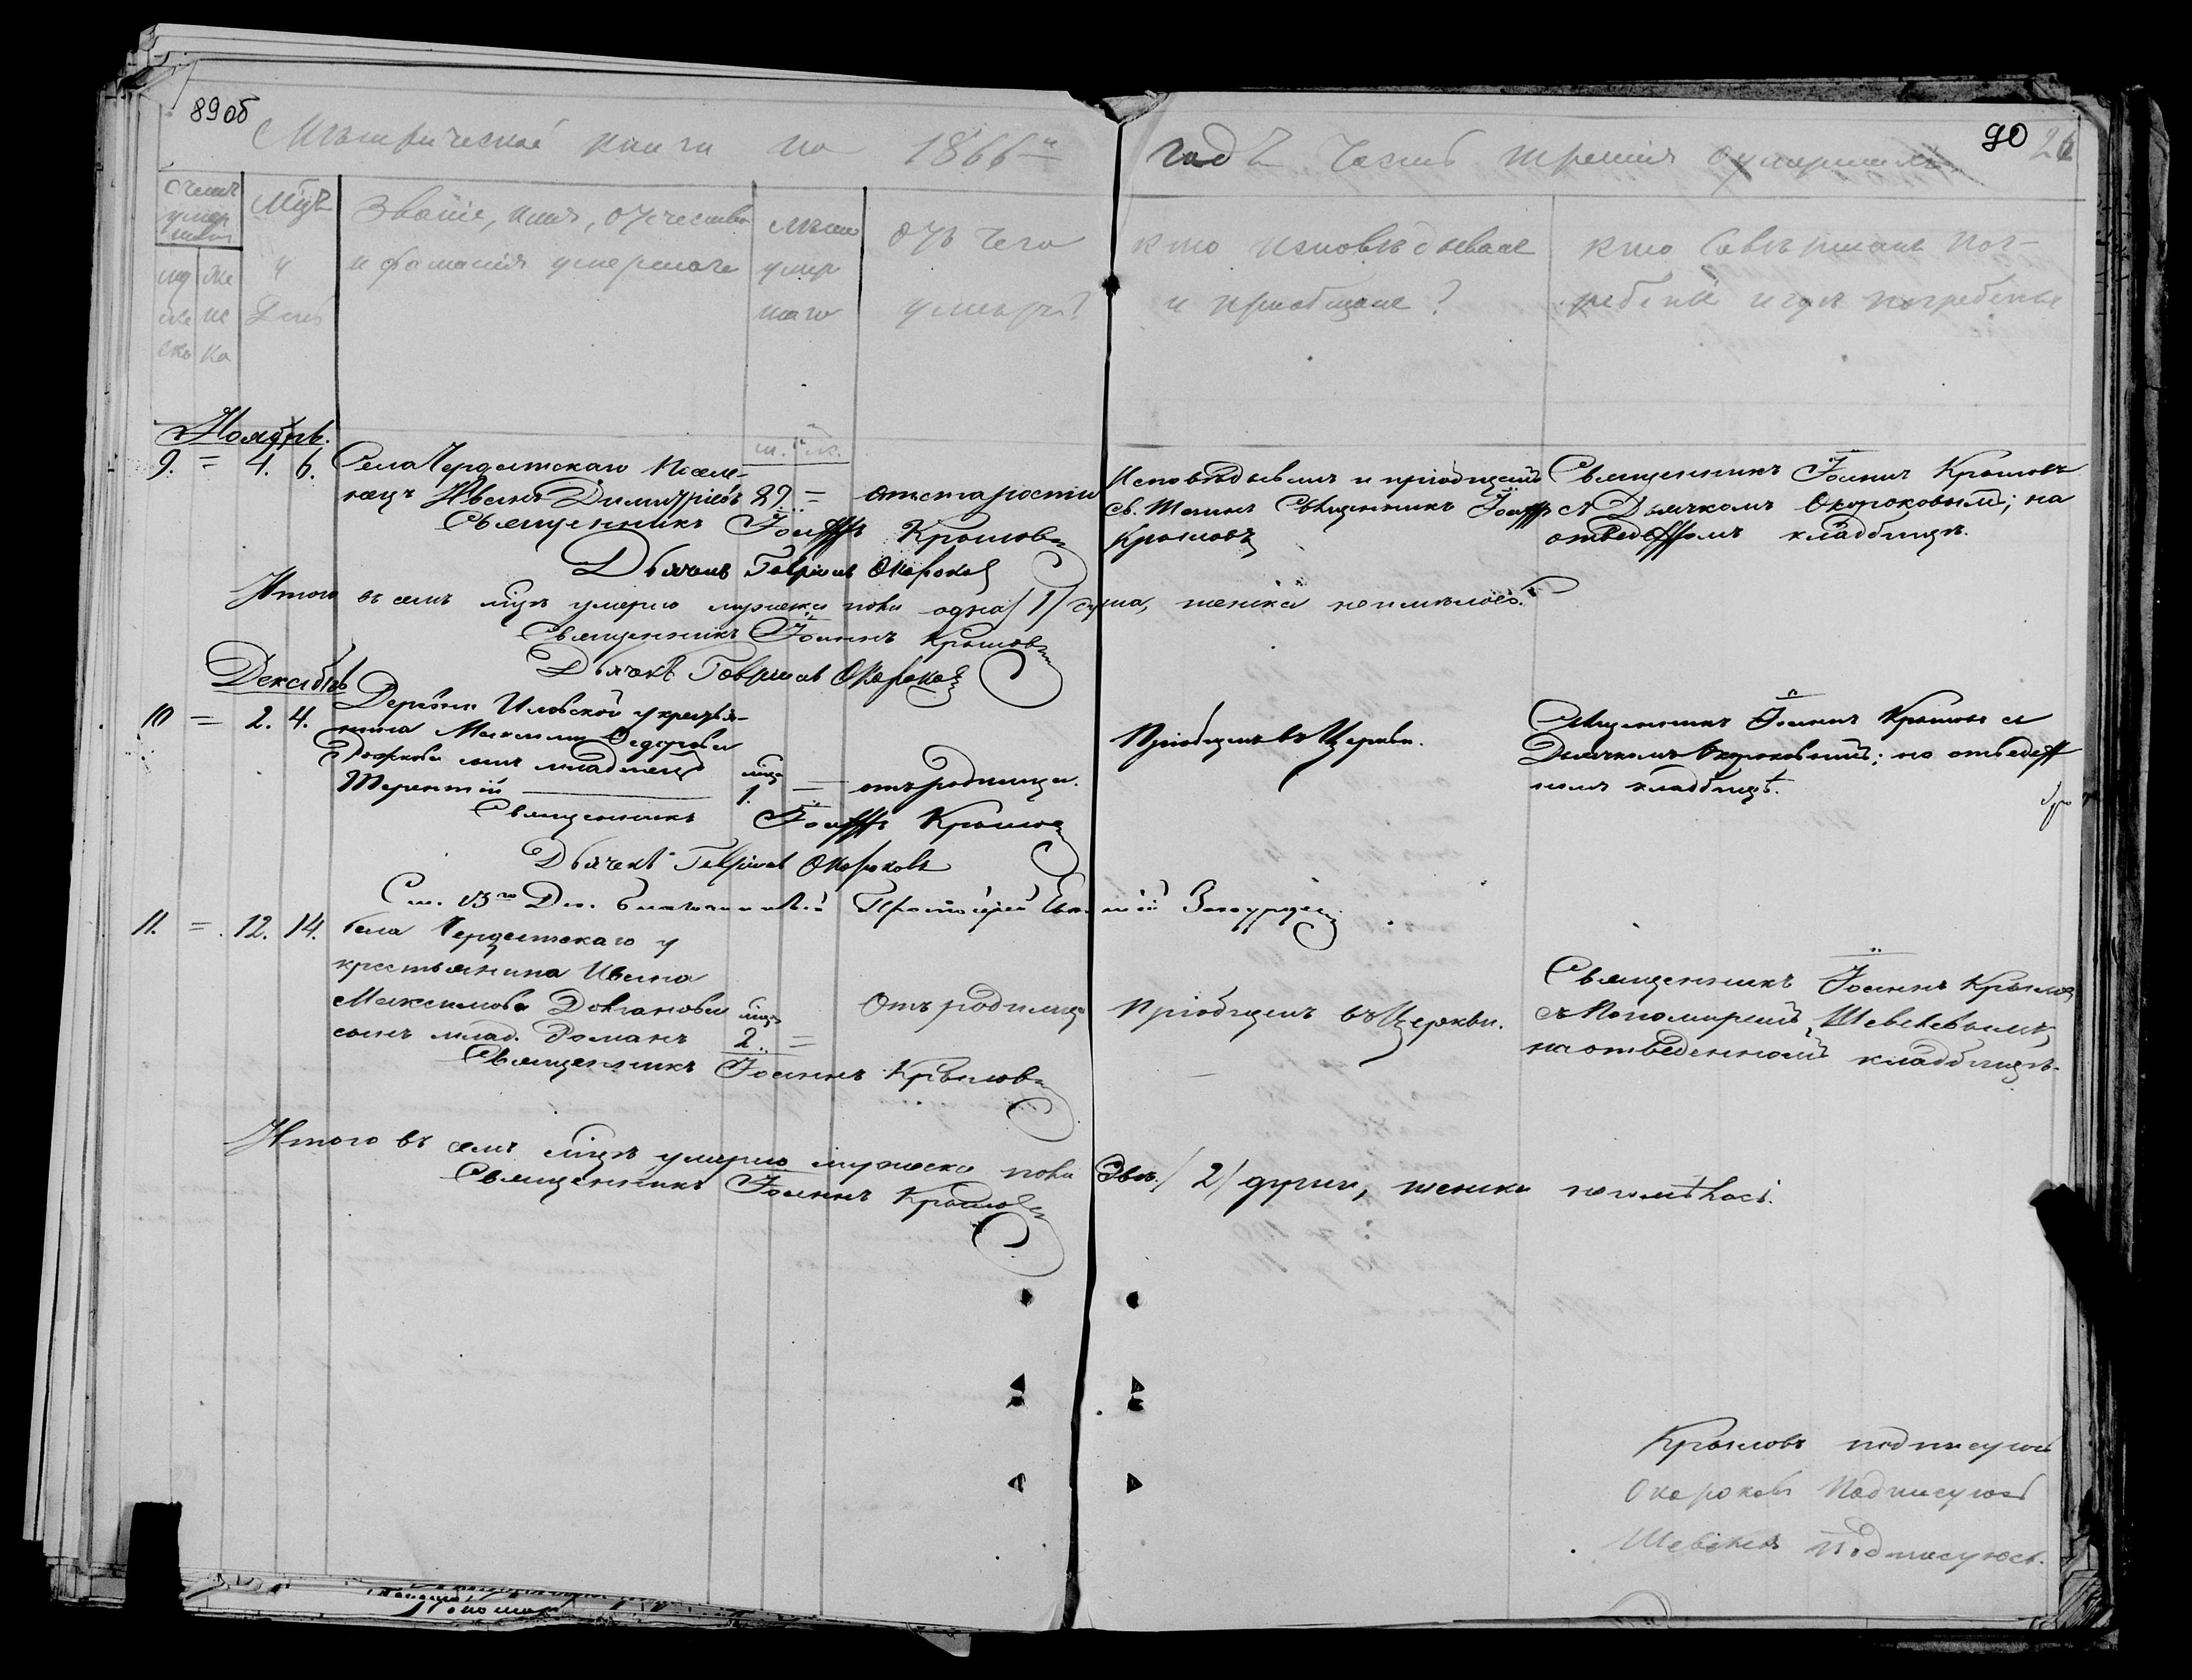 89об
Метрической книги на 1866й
годъ Часть третія о умершихъ
90 26
Счетъ умершихъ
муже ска
же нска
Мцъ и День
Званіе, имя, отчество
и фамилія умершаго
лѣта умершаго
отъ чего умеръ?
кто исповѣдывалъ
и пріобщалъ?
кто совершалъ пог-
ребеніе и гдѣ погребены
Ноябрь.
м. ж.
9. = 4. 6. Села Чердатскаго Поселе-
нецъ Иванъ Димитріевъ 89 = отъ старости
Исповѣдывалъ и пріобщалъ
св. Таинъ Священникъ Іоаннъ
Крыловъ
Священникъ Іоаннъ Крыловъ
съ Дьячкомъ Окороковымъ; на
отведенномъ кладбищѣ.
Священникъ Іоаннъ Крыловъ
Дьячекъ Гавріилъ Окороковъ
Итого въ семъ мцѣ умерло мужеска пола одна /1/ душа, женска неимѣлось.
Священникъ Іоаннъ Крыловъ
Дьячекъ Гавріилъ Окороковъ
Декабрь
10 = 2. 4. Деревни Иловской у крестья-
нина Максима Федорова
сынъ младенецъ
Терентій мца 1. = отъ родимца.
Пріобщенъ въ Церкви.
Священникъ Іоаннъ Крыловъ съ
Дьячкомъ Окороковымъ; на отведен
номъ кладбищѣ.
Священникъ Іоаннъ Крыловъ
Дьячекъ Гавріилъ Окороковъ
См. 13го Дек. благочинный Протоіерей
11. = 12. 14. Села Чердатскаго у
крестьянина Ивана
Максимова Довганова
сынъ млад. Романъ мца 2. =
Отъ родимца
Пріобщенъ въ Церкви.
Священникъ Іоаннъ Крыловъ
съ Пономаремъ Шевелевымъ,
на отведенномъ кладбищѣ.
Священникъ Іоаннъ Крыловъ
Итого въ семъ мцѣ умерло мужеска пола двѣ /2/ души, женска неимѣлось.
Священникъ Іоаннъ Крыловъ
Крыловъ подписуюсь
Окороковъ Подписуюсь
Шевелевъ Подписуюсь.